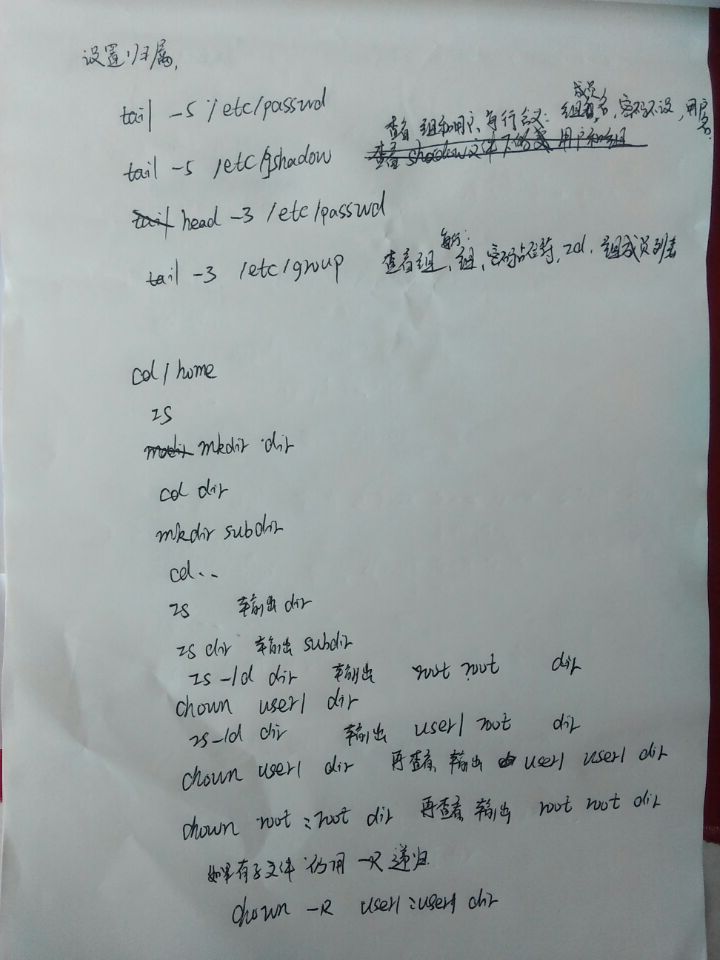 设置归属,
tail -5 /etc/passwd
查看组和用户, 每行含义: 组名, 密码不设, 用户名, 成员
tail -5 /etc/gshadow 查看 shadow 文件下的 用户和组
tail head -3 /etc/passwd
tail -3 /etc/group 查看组, 每行: 组, 密码占位符, id, 组成员列表
cd / home
ls
mkdir dir
cd dir
mkdir subdir
cd ..
ls 输出 dir
ls dir 输出 subdir
ls -ld dir 输出 root root dir
chown user1 dir
ls -ld dir 输出 user1 root dir
chown user1 dir 再查看, 输出 user1 user1 dir
chown root:root dir 再查看, 输出 root root dir
如果有子文件 仍用 -R 递归
chown -R user1:user1 dir